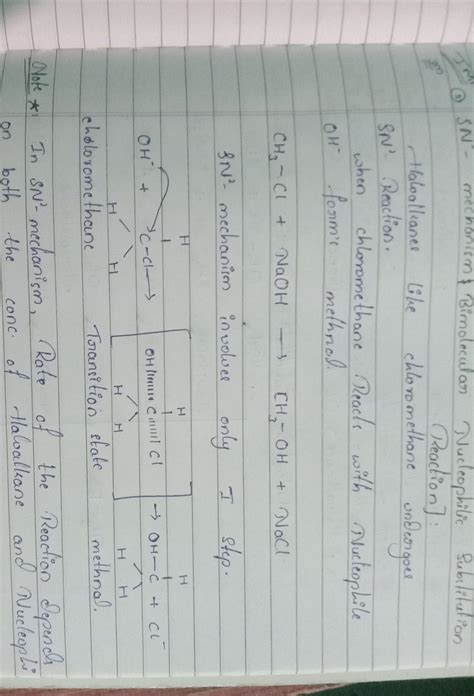 ② SN²- mechanism [Bimolecular Nucleophilic Substitution
Reaction]:
Haloalkanes like chloromethane undergoes
SN² Reaction.
when chloromethane Reacts with Nucleophile
OH⁻ forms methnol.
CH₃-Cl + NaOH → CH₃-OH + NaCl
SN²- mechanism involves only I step.
H H H
OH⁻ + C-Cl → [OH C Cl] → OH-C + Cl⁻
H H H H H H
chloromethane Transition state methnol.
Note * In SN²-mechanism, Rate of the Reaction depends
on both the conc. of Haloalkane and Nucleophi